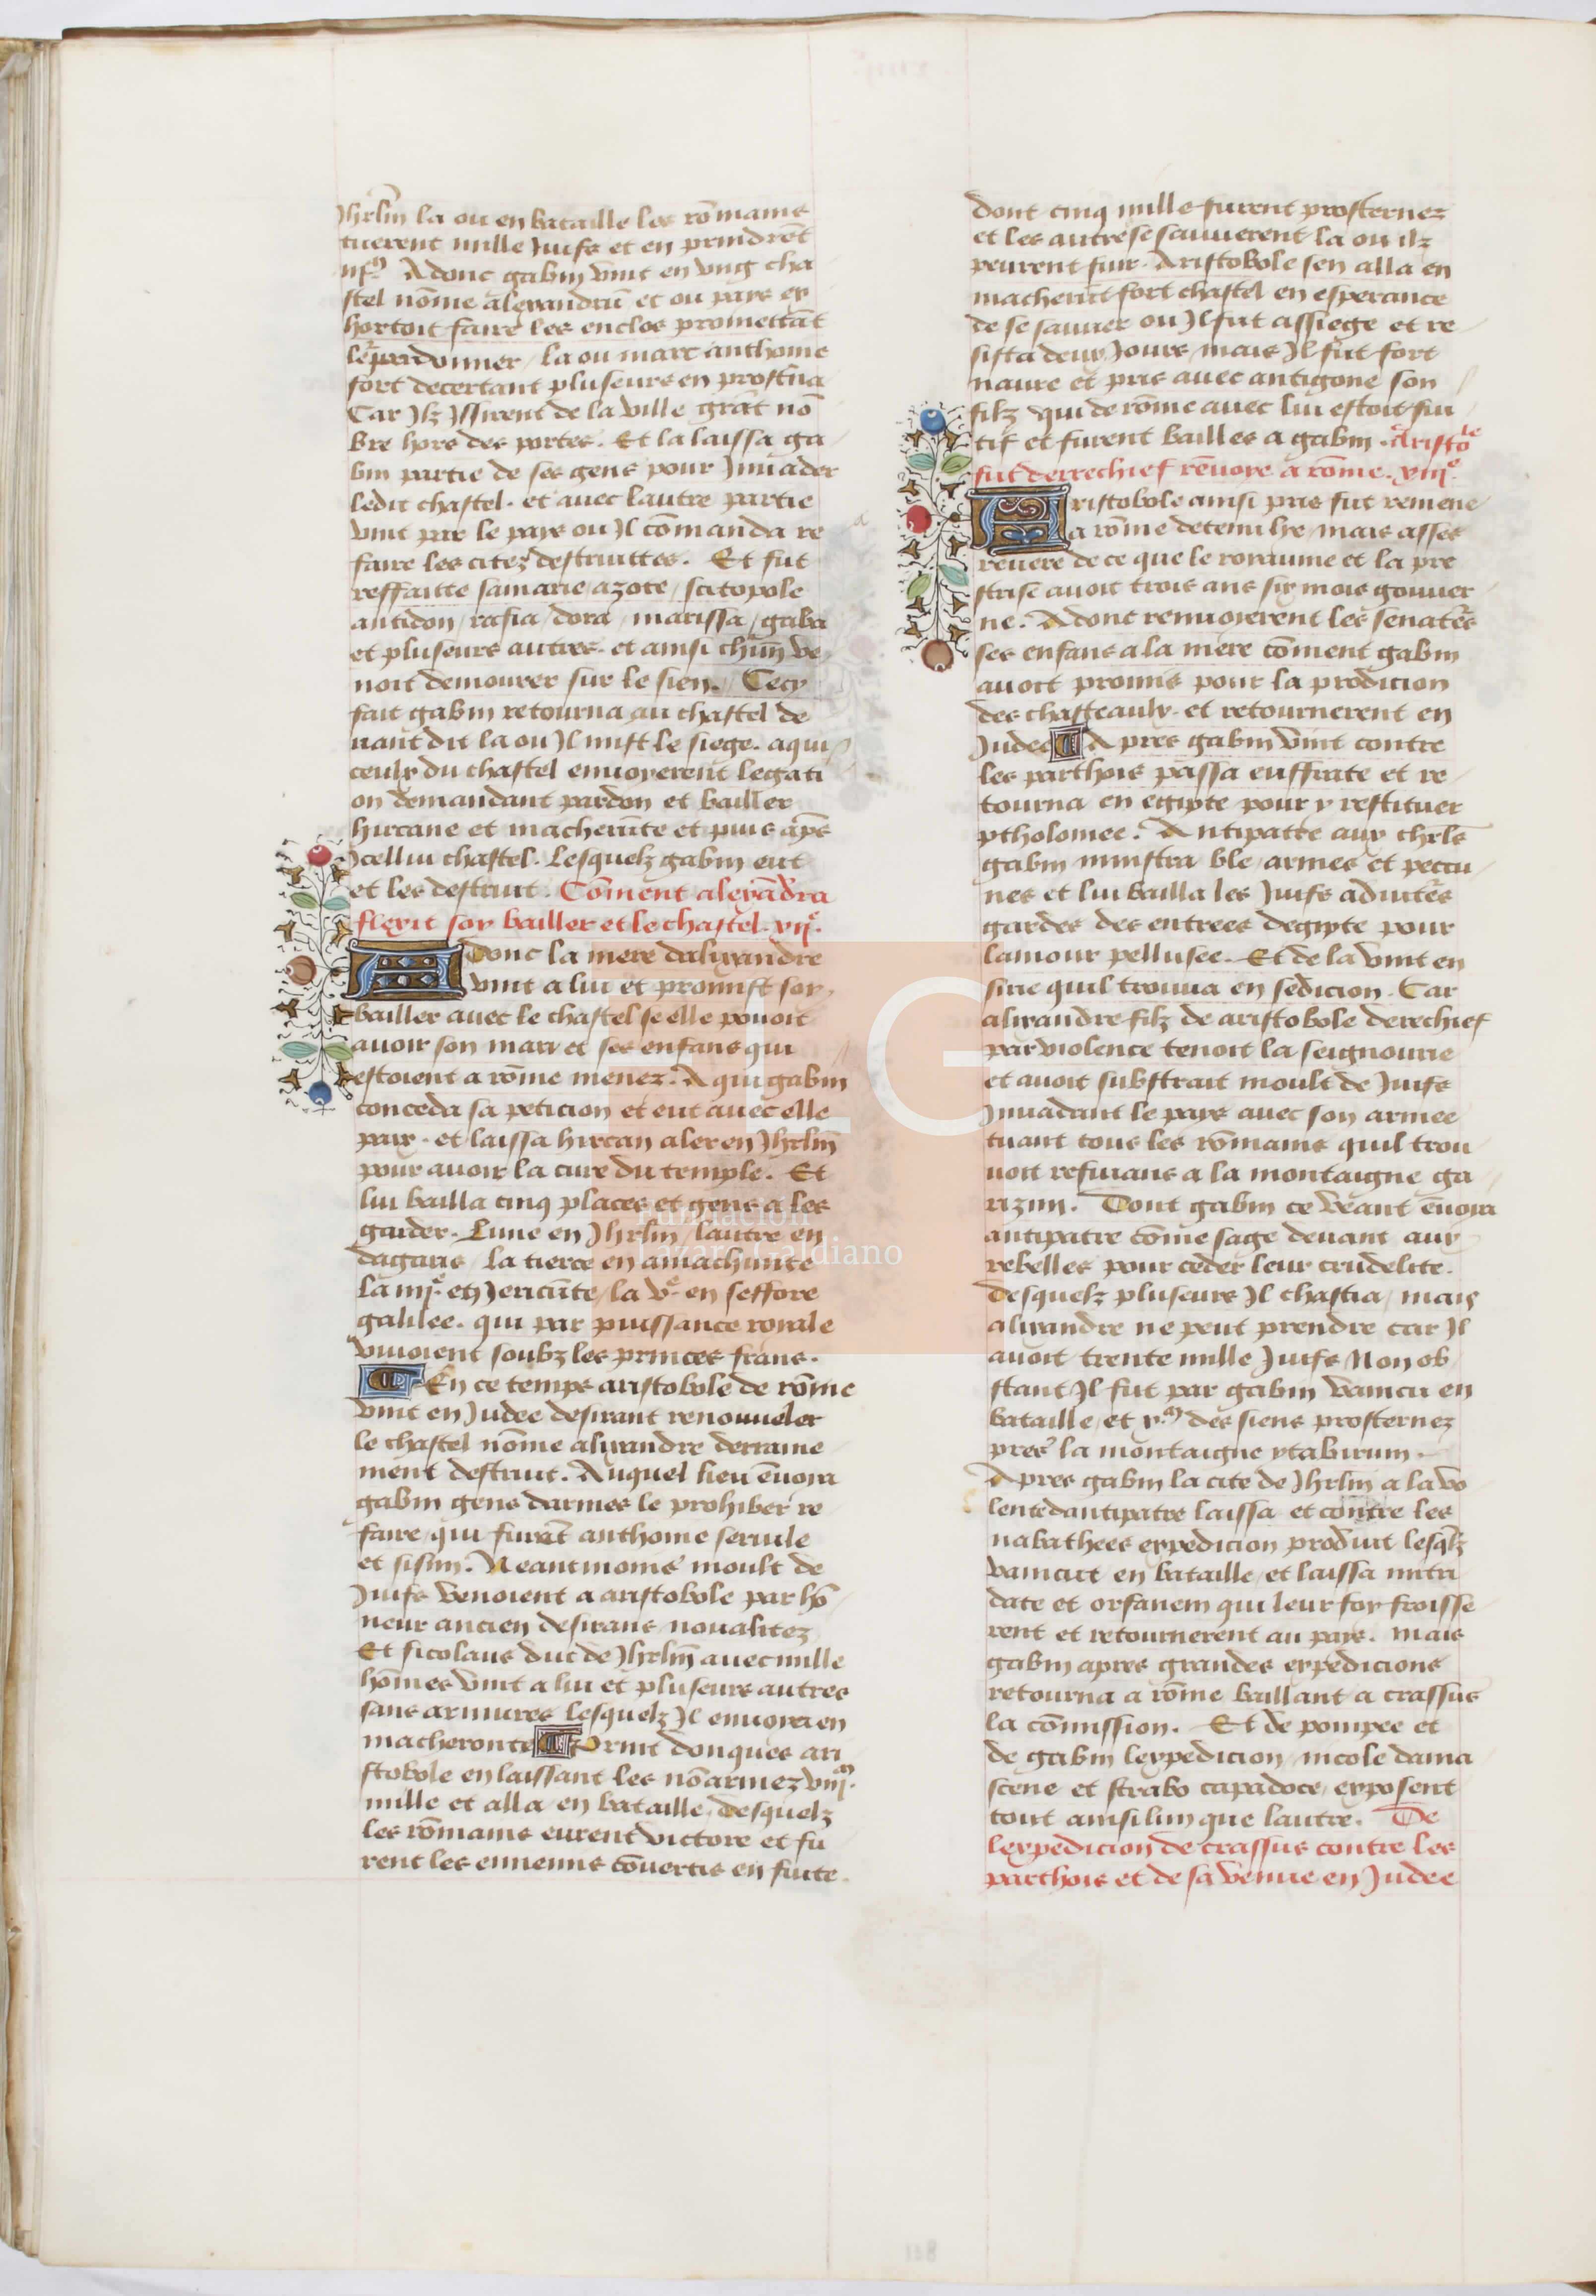 Jhrlm̄ la ou en bataille les rōmains
tuerent mille Juifs et en prindrēt
iijᵐ Adonc gabin vint en vng cha
stel nōme alexandrū et ou pays ex
hortoit faire les enclos promettāt
pardonner / la ou marc anthoine
fort decertant pluseurs en prostna
Car Jlz Jssirent de la ville grāt nō
bre hors des portes. Et la laissa ga
bin partie de ses gens pour Jnuader
ledit chastel. et auec lautre partie
vint par le pays ou Jl cōmanda re
faire les citez destruittes. Et fut
reffaitte samarie azote / scitopole
antidon / rafia / dora / marissa / gaba
et pluseurs autres. et ainsi chūn ve
noit demourer sur le sien. Cecy
fait gabin retourna au chastel de
uant dit la ou Jl mist le siege. a qui
ceulx du chastel enuoyerent legati
on demandant pardon et bailler
hircane et macherūte et puis apēs
Jcellui chastel. Lesquelz gabin eut
et les destruit. Cōment alexādra
flexit soy bailler et le chastel. xijᵉ.
Adonc la mere dalixandre
vint a lui et promist soy
bailler auec le chastel se elle pouoit
auoir son mary et ses enfans qui
estoient a rōme menez. A qui gabin
conceda sa peticion et eut auec elle
paix. et laissa hircan aler en Jhrlm̄
pour auoir la cure du temple. Et
lui bailla cinq places et gens a les
garder. Lune en Jhrlm / lautre en
dagaris / la tierce en amachunte
la iiijᵉ. en Jericūte / la vᵉ. en seffore
galilee. qui par puissance royale
viuoient soubz les princes frans.
En ce temps aristobole de rōme
vint en Judee desirant renouueler
le chastel nōme alixandre derraine
ment destruit. Auquel lieu ēuoia
gabin gens darmes le prohiber re
faire / qui furēt anthoine seruile
et sisim. Neantmoins moult de
Juifs venoient a aristobole par hō
neur ancien desirans noualitez
Et sicolaus duc de Jhrlm̄ auec mille
hōmes vint a lui et pluseurs autres
sans armures lesquelz Jl enuoya en
macheronte Print donques ari
stobole en laissant les nō armez viijᵐ.
mille et alla en bataille / desquelz
les rōmains eurent victore et fu
rent les ennemis cōuertis en fuite.
dont cinq mille furent prosternez
et les autres se sauuerent la ou ilz
peurent fuir. Aristobole sen alla en
macherūt fort chastel en esperance
de se sauuer ou Jl fut assiege et re
sista deux Jours / mais Jl fut fort
naure et pris auec antigone son
filz qui de rōme auec lui estoit fui
tif et furent bailles a gabin. Aristoᵇˡᵉ
fut derrechief rēuoye a rōme. xiijᵉ.
Aristobole ainsi pris fut remene
a rōme detenu lye / mais asses
reuere de ce que le royaume et la pre
strise auoit trois ans six mois gouuer
ne. Adonc renuoyerent les senatēs
ses enfans a la mere cōment gabin
auoit promis pour la prodicion
des chasteaulx. et retournerent en
Judee Apres gabin vint contre
les parthois passa euffrate et re
tourna en egipte pour y restituer
ptholomee. Antipatre aux
gabin ministra ble / armes et peccu
nes et lui bailla les Juifs
gardes des entrees degipte pour
lamour pellusee. Et de la vint en
sirie quil trouua en sedicion. Car
alixandre filz de aristobole derechief
par violence tenoit la seignourie
et auoit substrait moult de Juifs
Jnuadant le pays auec son armee
tuant tous les rōmains quil trou
uoit refuians a la montaigne ga
rizim. Dont gabin ce veant ēuoya
antipatre cōme sage deuant aux
rebelles pour ceder leur crudelite.
desquelz pluseurs Jl chastia / mais
alixandre ne peut prendre car Jl
auoit trente mille Juifs Non ob
stant Jl fut par gabin vaincu en
bataille / et xᵐ des siens prosternez
pres la montaigne ytabirum.
Apres gabin la cite de Jhrlm a la vo
lente dantipatre laissa et contre les
nabathees expedicion produit lesqlz
vaincut en bataille / et laissa mitri
date et orsanem qui leur foy froisse
rent et retournerent au pays. mais
gabin apres grandes expedicions
retourna a rōme baillant a crassus
la cōmission. Et de pompee et
de gabin lexpedicion / nicole dama
scene et strabo capadoce / exposent
tout ainsi lun que lautre. De
lexpedicion de crassus contre les
parthois et de sa venue en Judee
Fundación
Lázaro Galdiano